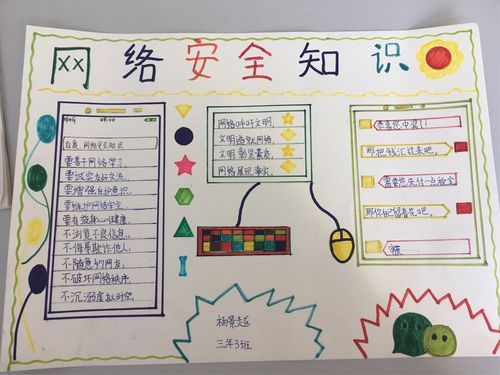 网络安全知识
08:00
百度 网络安全知识
要善于网络学习,
要诚实友好交流,
要增强自护意识,
要维护网络安全,
要有益身心健康,
不浏览不良信息,
不侮辱欺诈他人,
不随意约网友,
不破坏网络秩序,
不沉溺虚拟时空。
网络呼吁文明,
文明造就网络,
文明彰显素养,
网络展现事实。
恭喜您中奖了!
那把钱汇过来吧。
需要您先付一点税金
那你自己留着花吧。
三年3班